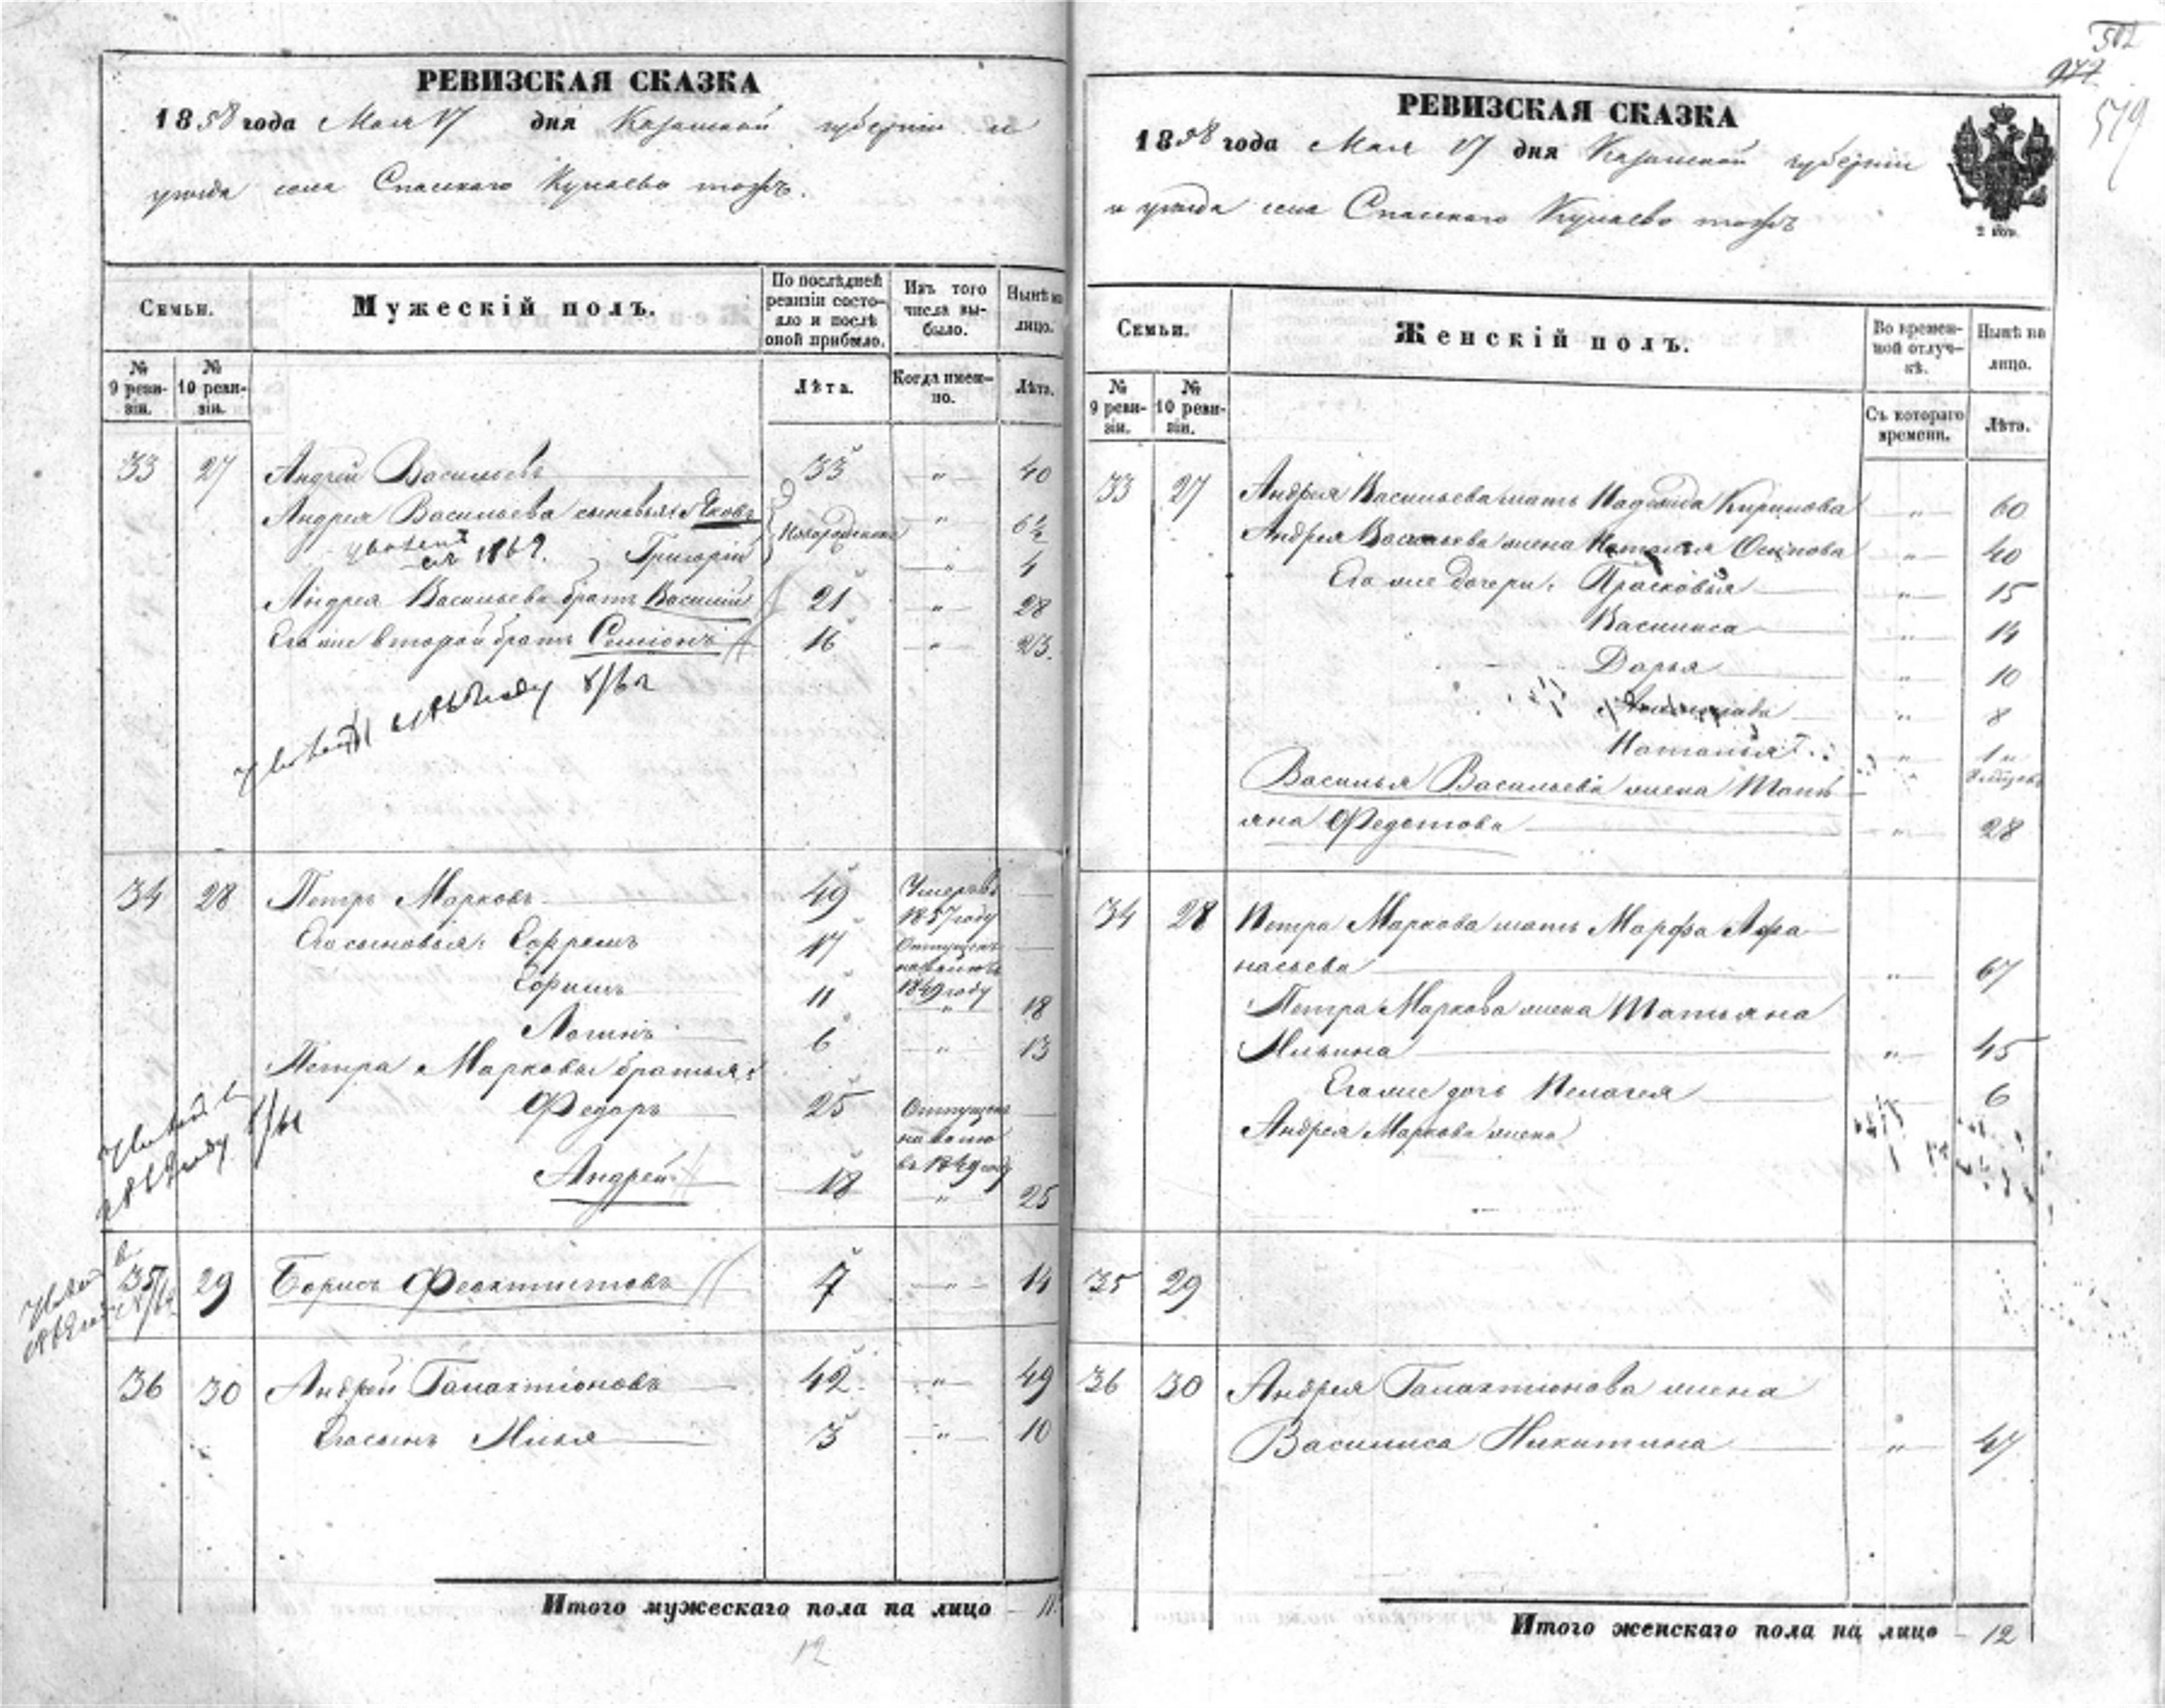 РЕВИЗСКАЯ СКАЗКА
1858 года Мая 17 дня Казанской губернiи и
уѣзда села Спаскаго Кунаево тожъ.
Семьи.
Мужескiй полъ.
По послѣдней ревизiи состояло и послѣ оной прибыло.
Изъ того числа выбыло.
Нынѣ на лицо.
№ 9 ревизiи.
№ 10 ревизiи.
Лѣта.
Когда именно.
Лѣта.
33 27 Андрей Васильевъ 33 „ 40
Андрея Васильева сыновья: Яковъ Новорожденные „ 6½
1869. Григорiй „ 4
Андрея Васильева братъ Василiй 21 „ 28
Его же второй братъ Семiонъ 16 „ 23.
34 28 Петръ Марковъ 49 Умеръ въ 1857 году
Его сыновья: Ефремъ 17 Отпущенъ на волю въ 1849 году
Ефимъ 11 „ 18
Логинъ 6 „ 13
Петра Маркова братья:
Федоръ 25 Отпущенъ на волю въ 1849 году
Андрей 18 „ 25
35 29 Борисъ Феоктистовъ 7 „ 14
36 30 Андрей Галактiоновъ 42 „ 49
Его сынъ Илья 3 „ 10
Итого мужескаго пола на лицо 11.
12
РЕВИЗСКАЯ СКАЗКА
1858 года Мая 17 дня Казанской губернiи
и уѣзда села Спаскаго Кунаево тожъ
2 коп.
579
Семьи.
Женскiй полъ.
Во временной отлучкѣ.
Нынѣ на лицо.
№ 9 ревизiи.
№ 10 ревизiи.
Съ котораго времени.
Лѣта.
33 27 Андрея Васильева мать Надежда Кирилова „ 60
Андрея Васильева жена Наталья Осипова „ 40
Его же дочери: Прасковья „ 15
Василиса „ 14
Дарья „ 10
„ 8
Наталья „ 1 и
Василья Васильева жена Татьяна Федотова „ 28
34 28 Петра Маркова мать Марфа Афанасьева „ 67
Петра Маркова жена Татьяна
Ильина „ 45
Его же дочь Пелагея 6
Андрея Маркова жена
35 29
36 30 Андрея Галактiонова жена
Василиса Никитина „ 47
Итого женскаго пола на лицо 12